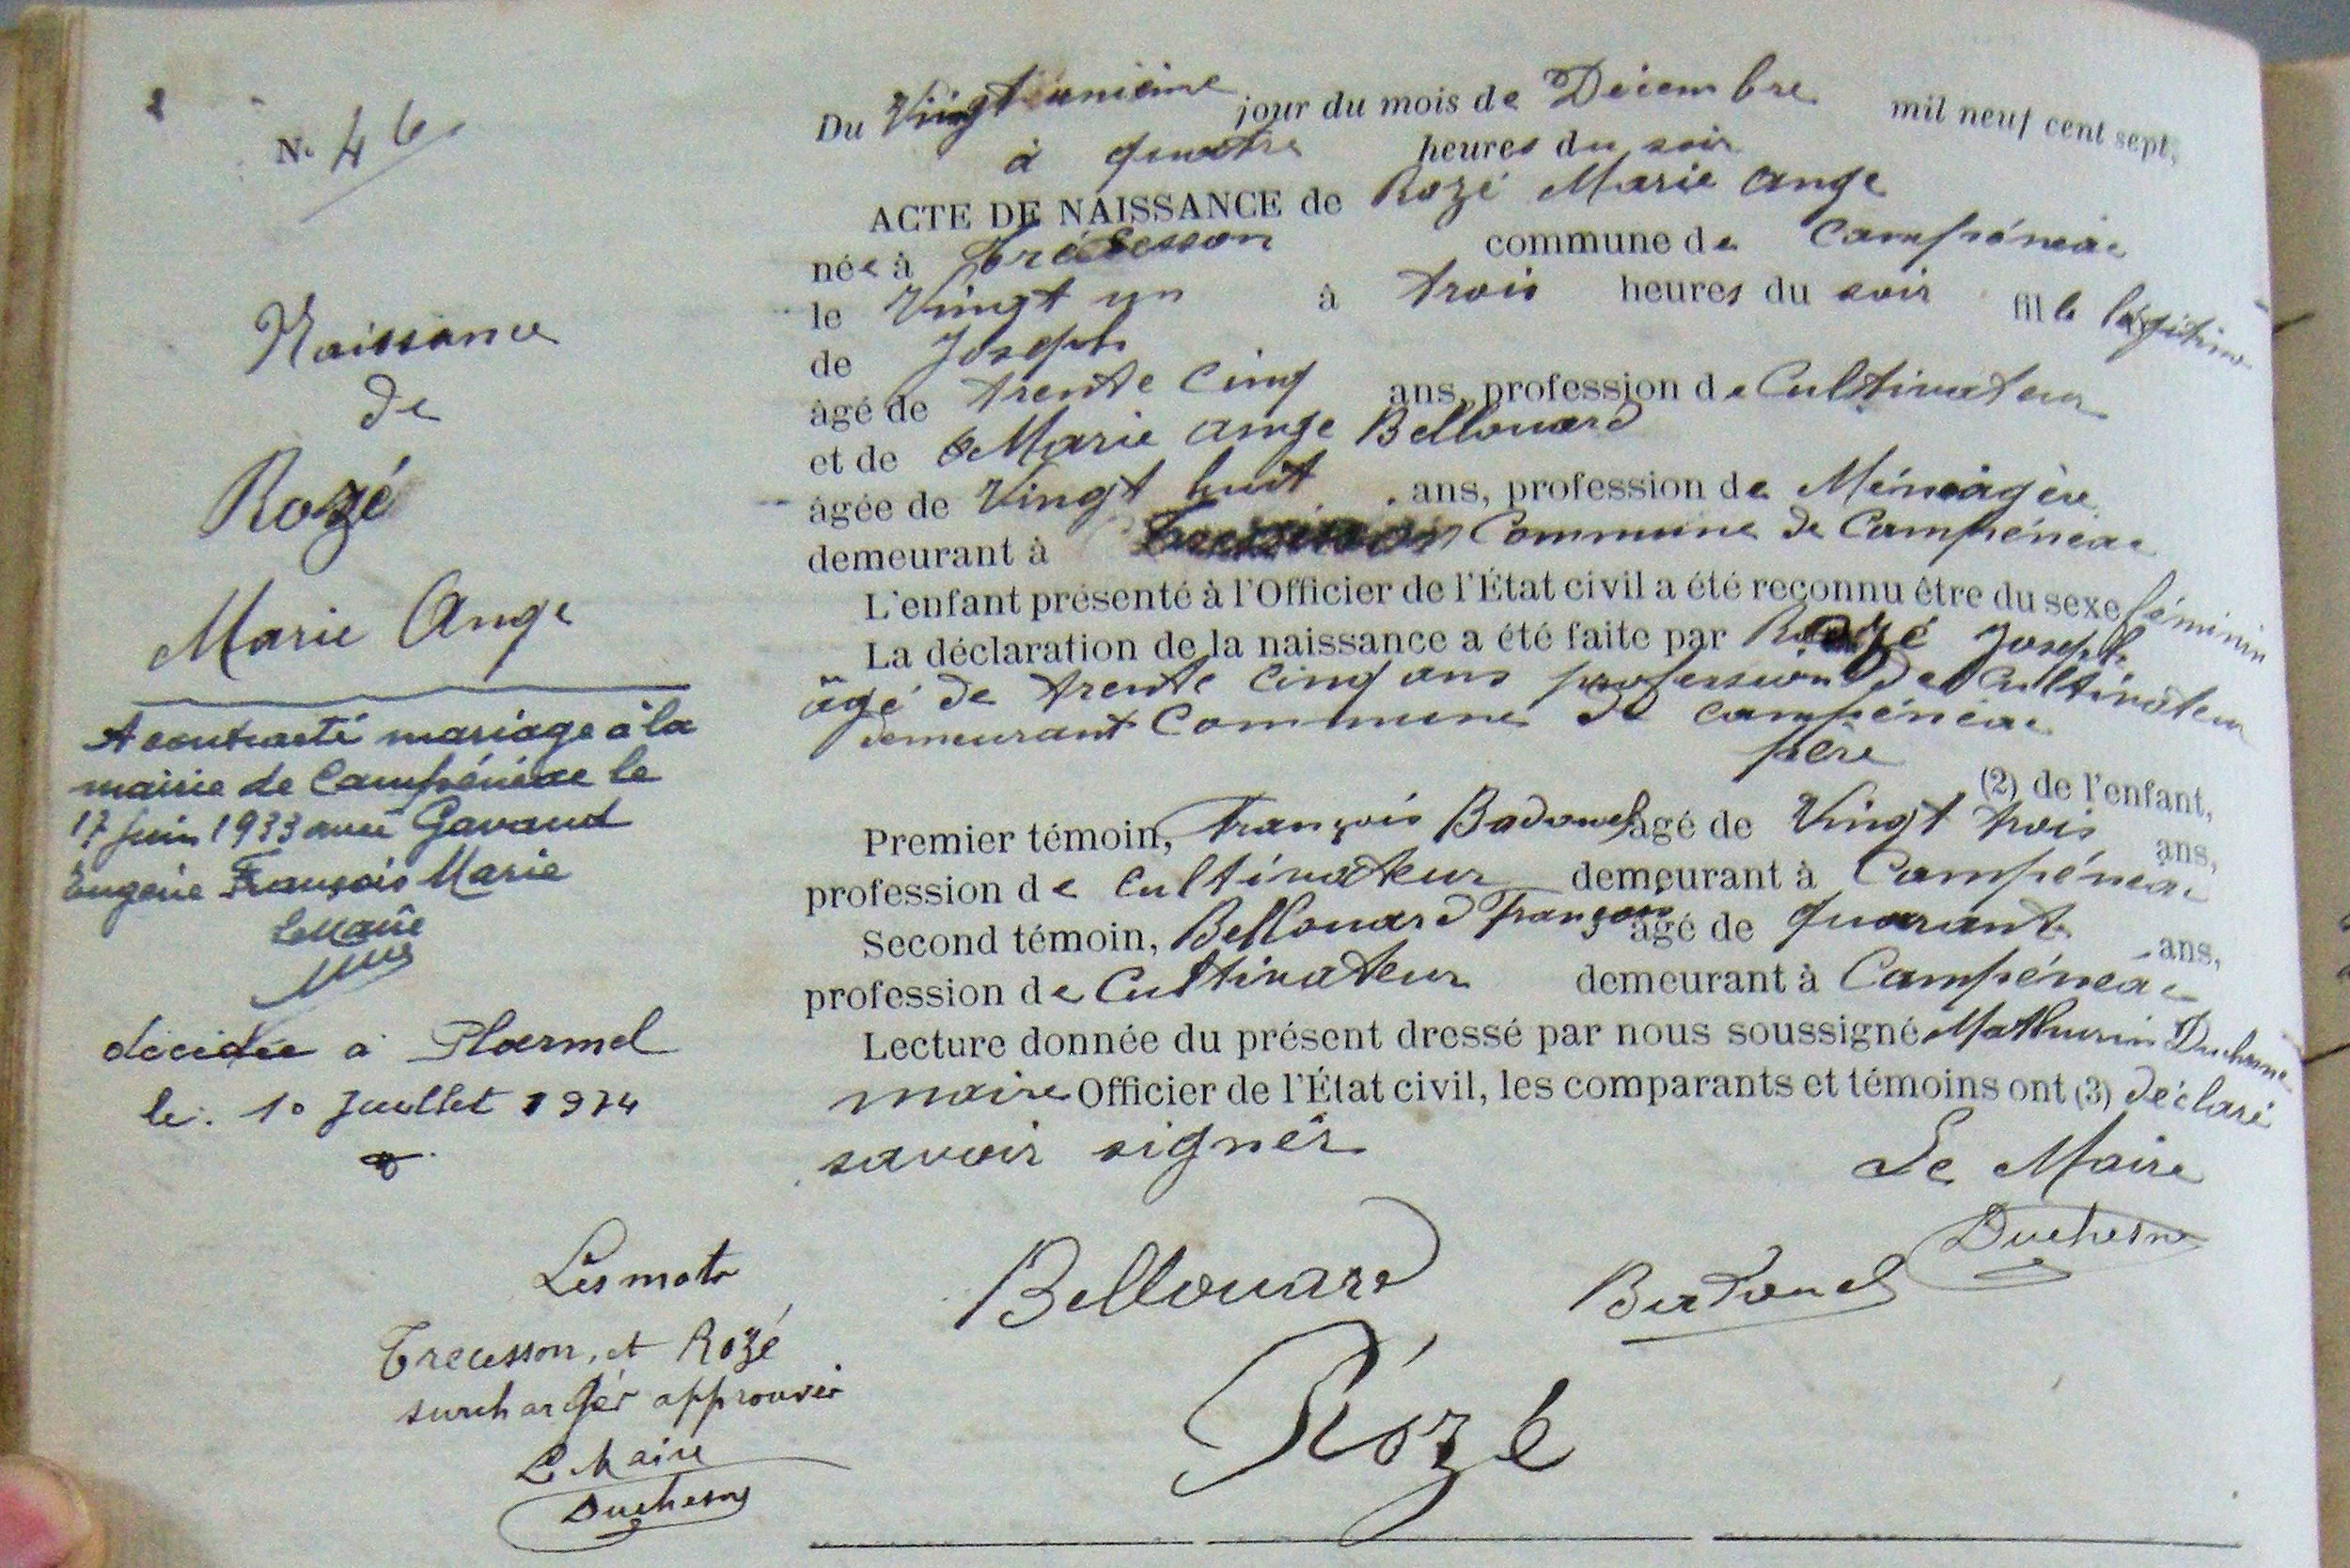 N. 46
Naissance
de
Rozé
Marie Ange
A contracté mariage à la
mairie de Campénéac le
17 juin 1933 avec Gavaud
Eugène François Marie
Le Maire
décédée à Ploermel
le. 10 Juillet 1974
Les mots
Trecesson, et Rozé
surchargés approuvés
Le Maire
Duchesne
Du Vingt unième jour du mois de Décembre mil neuf cent sept,
à quatre heures du soir
ACTE DE NAISSANCE de Rozé Marie ange
née à Trécesson commune de Campénéac
le Vingt un à trois heures du soir fille légitime
de Joseph
âgé de trente cinq ans, profession de Cultivateur
et de Marie ange Bellouard
âgée de Vingt huit ans, profession de Ménagère
demeurant à Commune de Campénéac
L'enfant présenté à l'Officier de l'État civil a été reconnu être du sexe féminin
La déclaration de la naissance a été faite par Rozé Joseph
âgé de trente cinq ans profession de Cultivateur
demeurant Commune de Campénéac
père (2) de l'enfant,
Premier témoin, François Badouel âgé de Vingt trois ans,
profession de Cultivateur demeurant à Campénéac
Second témoin, Bellouard François âgé de quarante ans,
profession de Cultivateur demeurant à Campénéac
Lecture donnée du présent dressé par nous soussigné Mathurin Duchesne
maire Officier de l'État civil, les comparants et témoins ont (3) déclaré
savoir signer
Le Maire
Duchesne
Bellouard Badouel
Rozé